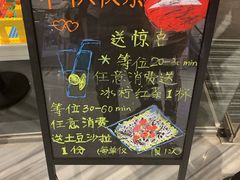 送惊喜
等位20-30min
任意消费送
冰柠红茶1杯
等位30-60min
任意消费
送土豆沙拉
1份